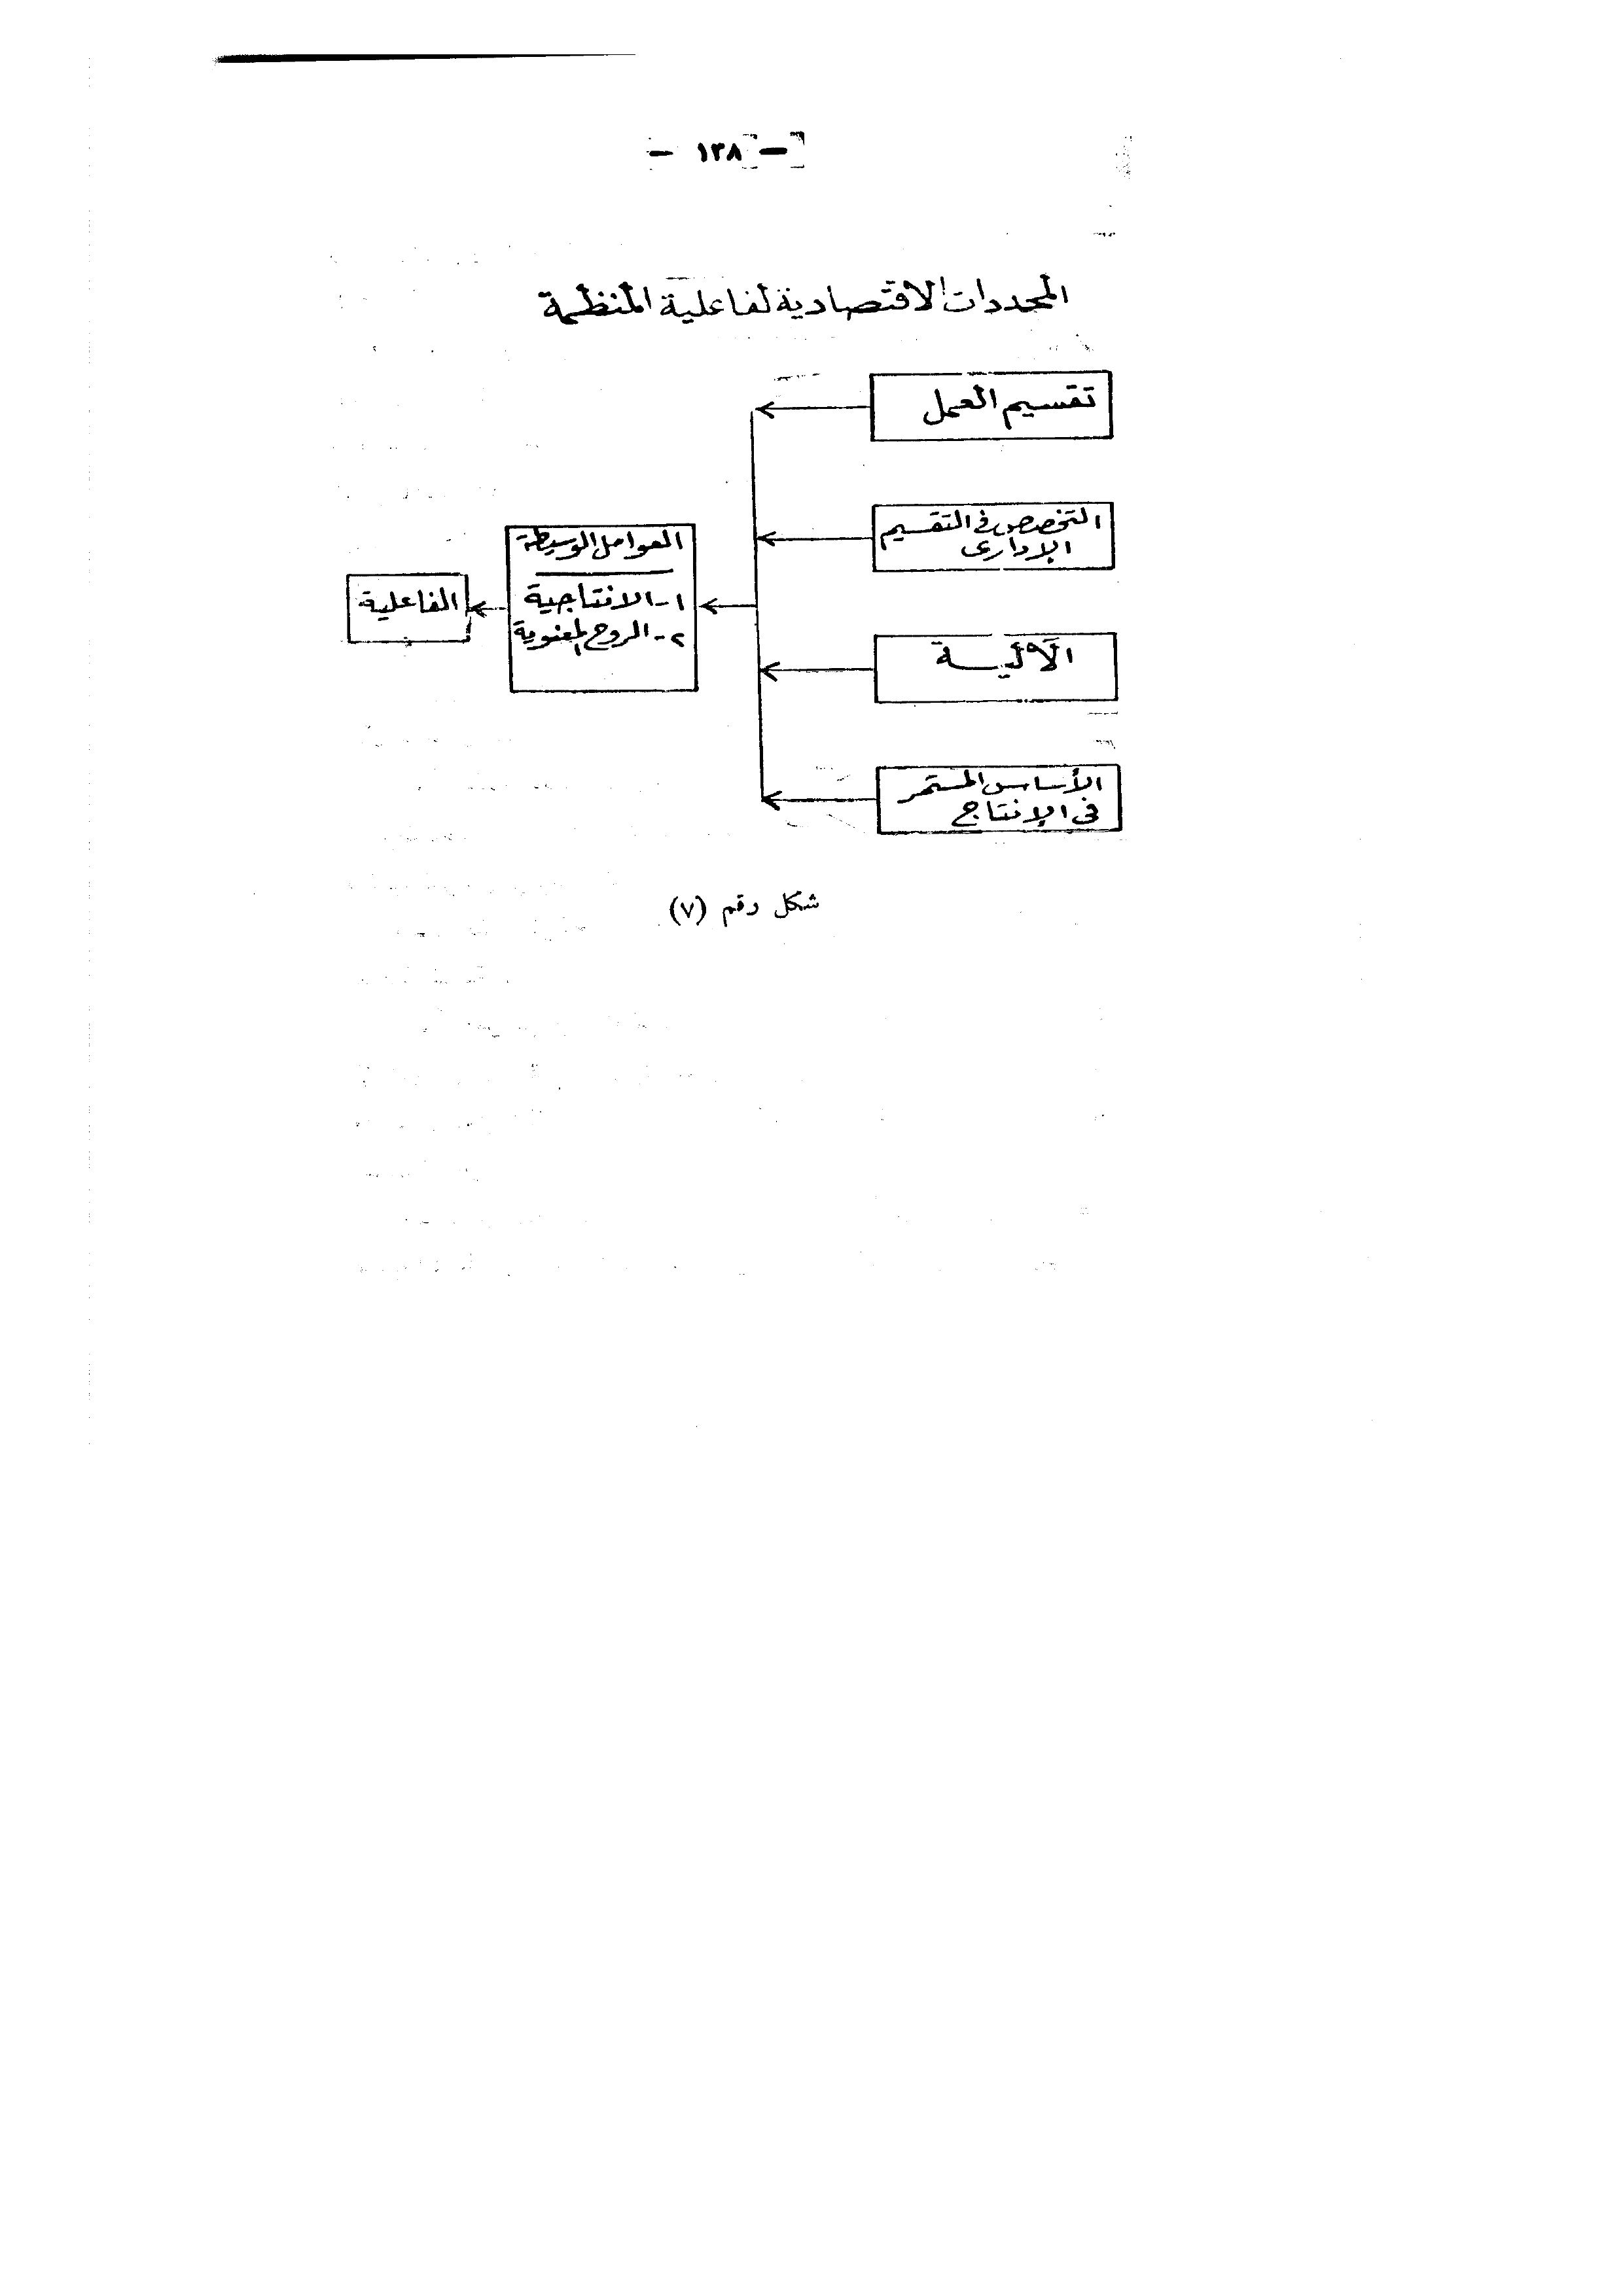 — ١٣٨ —
المحددات الاقتصادية لفاعلية المنظمة
تقسيم العمل
التخصص فى التقسيم
الإدارى
الآليـــة
الأساس المستمر
فى الإنتاج
العوامل الوسيطة
١- الانتاجية
٢- الروح المعنوية
الفاعلية
شكل رقم (٧)